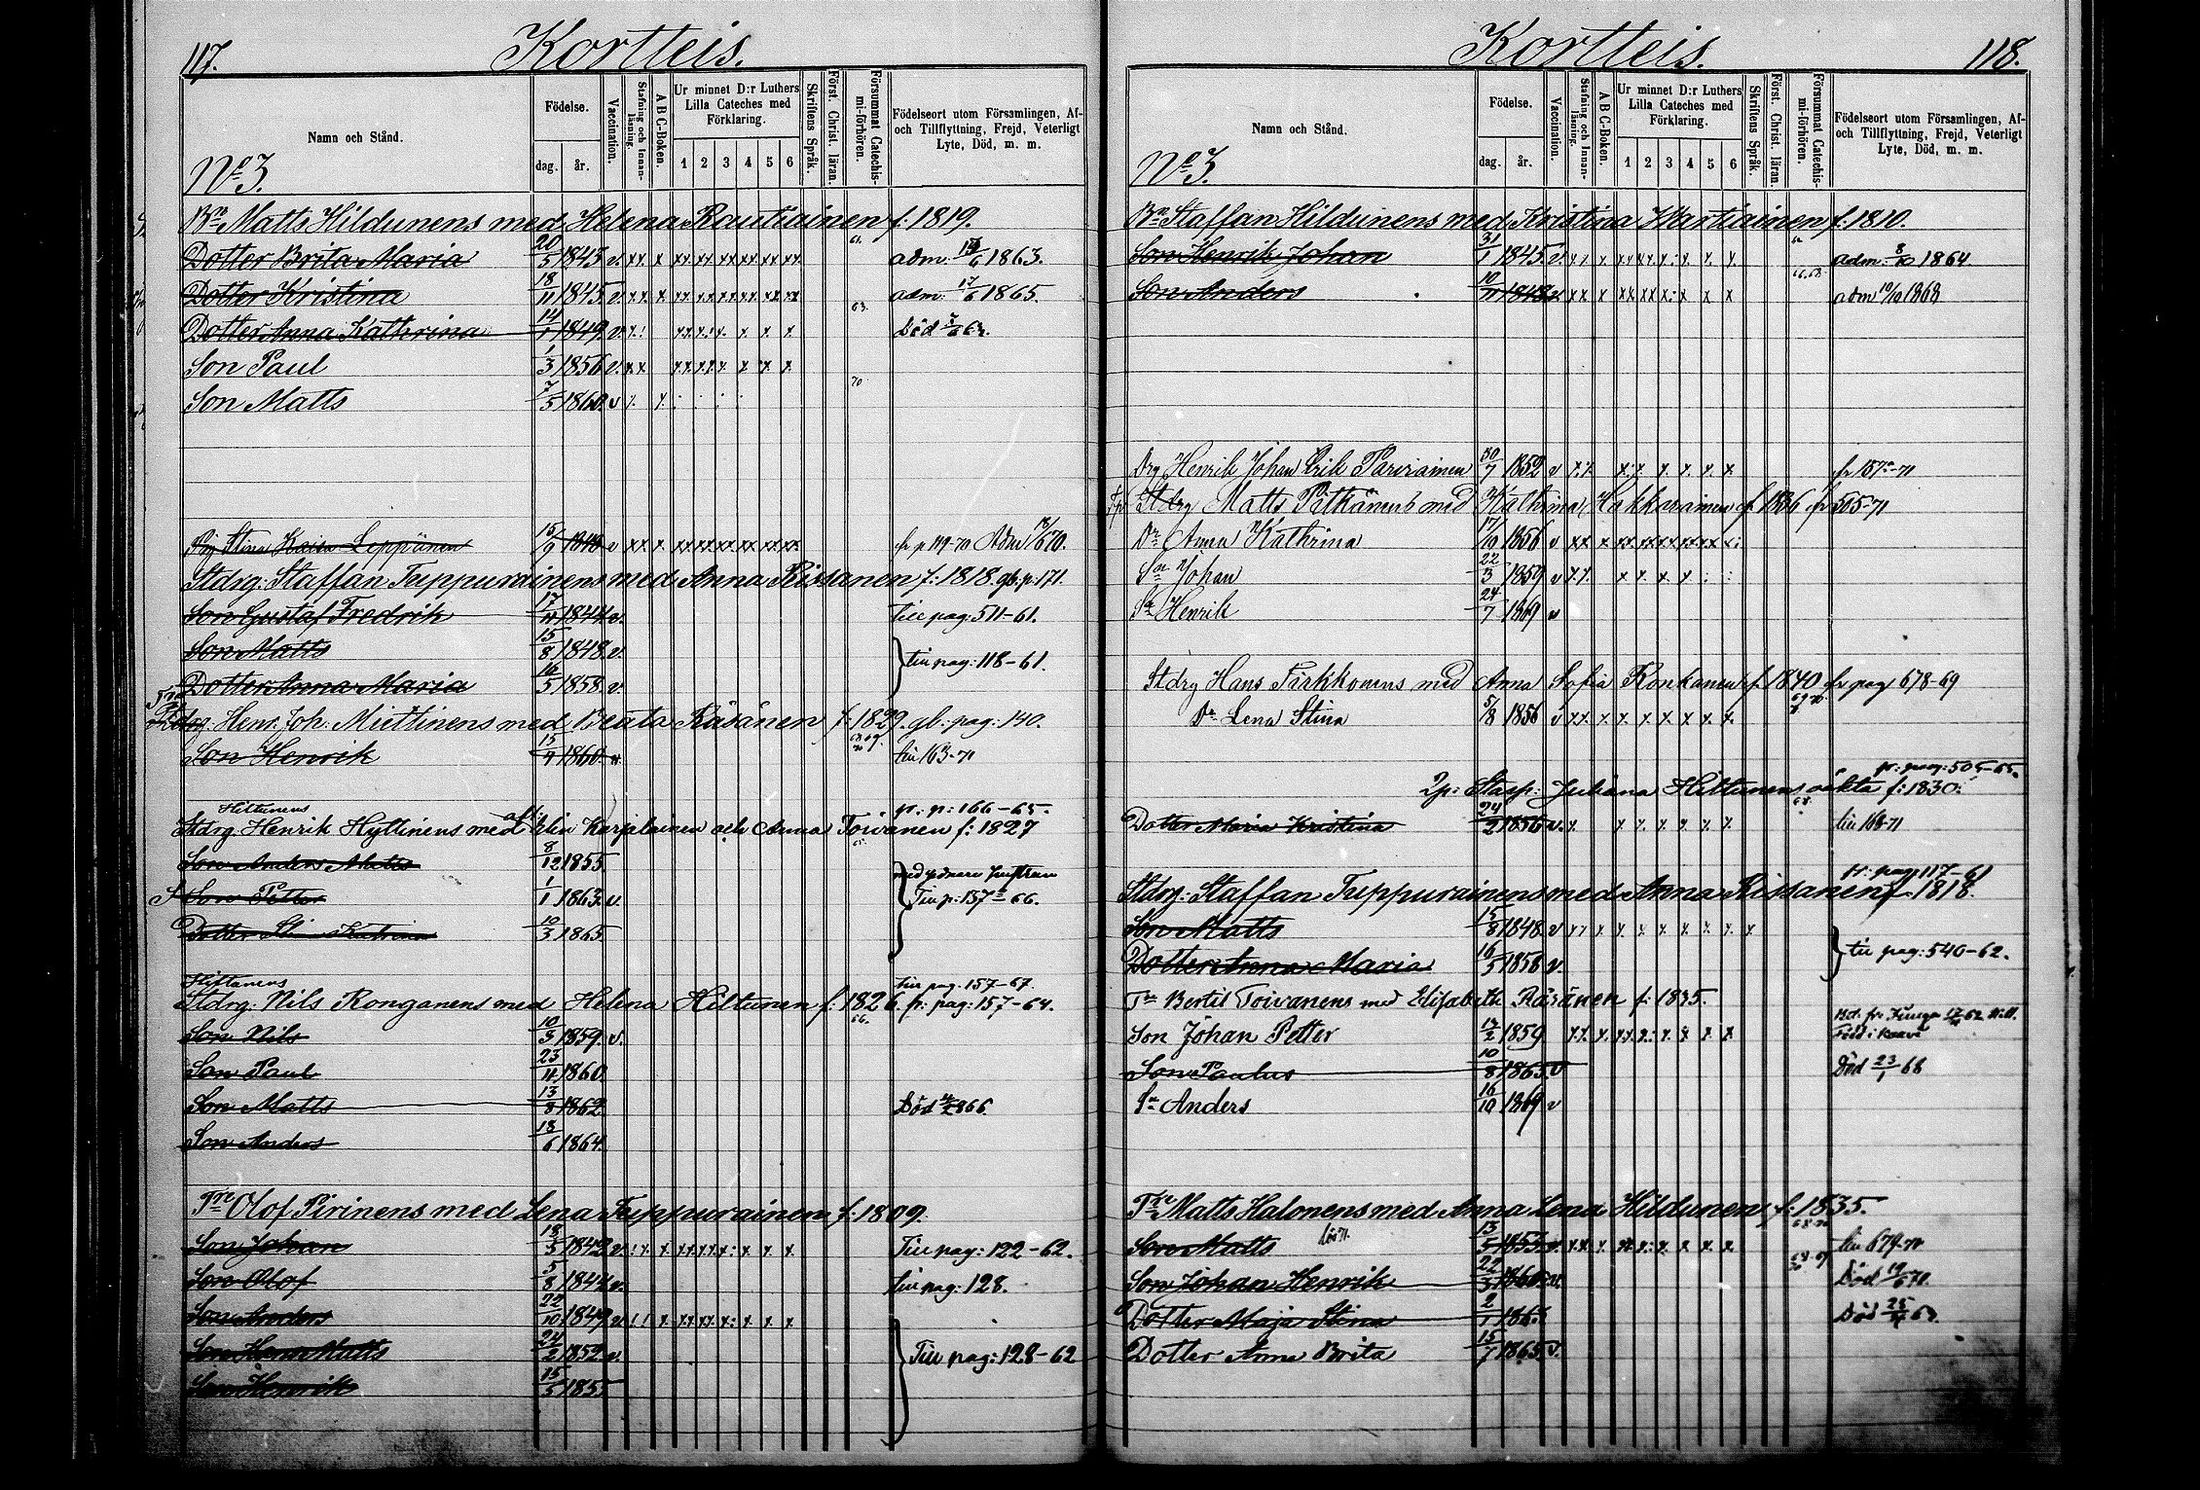 117.
Kortteis.
Namn och Stånd.
No 3.
Födelse.
dag. år.
Vaccination.
Stafning och Innanläsning.
A B C-Boken.
Ur minnet D:r Luthers Lilla Cateches med Förklaring.
1 2 3 4 5 6
Skriftens Språk.
Först. Christ. läran.
Försummat Catechismi-förhören.
Födelseort utom Församlingen, Af- och Tillflyttning, Frejd, Veterligt Lyte, Död, m. m.
Bn Matts Hildunens med Helena Rautiainen f. 1819.
Dotter Brita Maria 20/5 1843 v. adm. 1863.
Dotter Kristina 18/11 1845 v. adm. 17/6 1865.
Dotter Anna Kathrina 14/1 1849 v. Död
Son Paul 1/3 1856 v.
Son Matts 7/5 1860 v
Stina Kaisa Leppänen 15/9 1848 v fr p 119-70 Adm 18/6 70.
Stdrg: Staffan Tuppurainens med Anna Rissanen f: 1818. gb. p. 171.
Son Gustaf Fredrik 17/11 1844 v. till pag: 511-61.
Son Matts 15/8 1848 v. till pag: 118-61.
Dotter Anna Maria 16/5 1858 v.
Henr. Joh: Miettinens med Beata Räsänen f: 1829. gb: pag: 140.
Son Henrik 15/4 1860 till 163-71
Hiltunens fr. p: 166-65.
Stdrg Henrik Hyttinens med Elin Karjalainen och Anna Toivanen f: 1827
Son Anders Matts 8/12 1855
Son Petter 1/1 1863 v. Till p: 157 66.
Dotter Katrina 10/3 1865
Hiltunens till pag. 157-67.
Stdrg: Nils Ronganens med Helena Hiltunen f. 1826 fr. pag: 157-64.
Son Nils 10/3 1859 v.
Son Paul 23/11 1860
Son Matts 13/8 1862 Död 866
Son Anders 18/6 1864.
Olof Pirinens med Lena Tuppurainen f. 1809.
Son Johan 18/5 1842 v. Till pag: 122-62.
Son Olof 5/8 1844 v. till pag: 128.
Son Anders 22/10 1849 v
Son Henr Matts 24/2 1852 v. Till pag: 128-62
Son Henrik 15/5 1855
Kortteis.
118.
Namn och Stånd.
No 3.
Födelse.
dag. år.
Vaccination.
Stafning och Innanläsning.
A B C-Boken.
Ur minnet D:r Luthers Lilla Cateches med Förklaring.
1 2 3 4 5 6
Skriftens Språk.
Först. Christ. läran.
Försummat Catechismi-förhören.
Födelseort utom Församlingen, Af- och Tillflyttning, Frejd, Veterligt Lyte, Död, m. m.
Bn Staffan Hildunens med Kristina Wartiainen f. 1810.
Son Henrik Johan 31/1 1845 v. adm. 8/10 1864
Son Anders 10/11 1848 v. adm 10/10 1868
Drg Henrik Johan Erik Parviainen 30/7 1852 v fr 157 -71
Stdrg Matts Pitkänens med Kathrina Hakkarainen f 1836 fr 505-71
Dr Anna Kathrina 17/10 1856 v
Sn Johan 22/3 1859 v
Sn Henrik 24/7 1869 v
Stdrg Hans Pirkkonens med Anna Sofia Ronkanen f. 1840 fr pag 678-69
Dr Lena Stina 5/8 1856 v
fr: pag: 505-65.
Juliana Hiltunens oäkta f: 1830.
Dotter Maria Kristina 24/2 1856 v. till 163-71
fr: pag: 117-61
Stdrg: Staffan Tuppurainens med Anna Rissanen f. 1818.
Son Matts 15/8 1848 v till pag: 540-62.
Dotter Anna Maria 16/5 1858 v.
Bertil Toivanens med Elisabeth Räsänen f: 1835.
Son Johan Petter 1859
Son Paulus 10/8 1865 v Död 23/1 68
Sn Anders 16/10 1869 v
Matts Halonens med Anna Lena Hildunen f. 1835.
Son Matts 13/5 1855 v. till 679-71
Son Johan Henrik 22/3 1860 v. Död
Dotter Maja Stina Död
Dotter Anna Brita 15/7 1865 v.